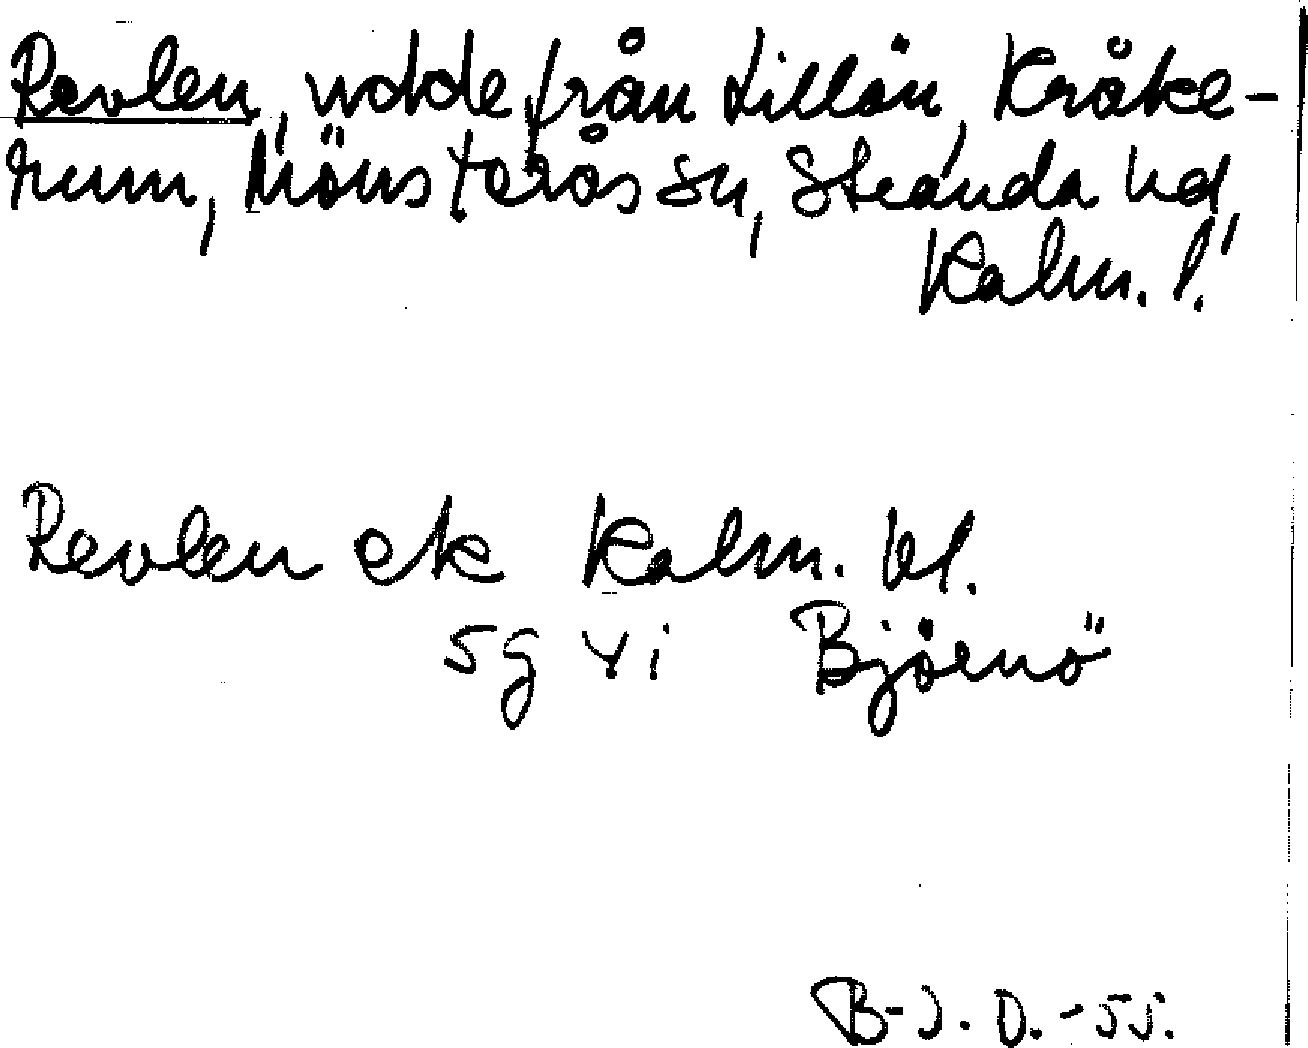 Revlen, udde från Lillön, Kråke-
rum, Mönsterås sn, Stranda hd,
Kalm. l.
Revlen ek Kalm. bl.
5g Yi Björnö
B-J. O. -55.